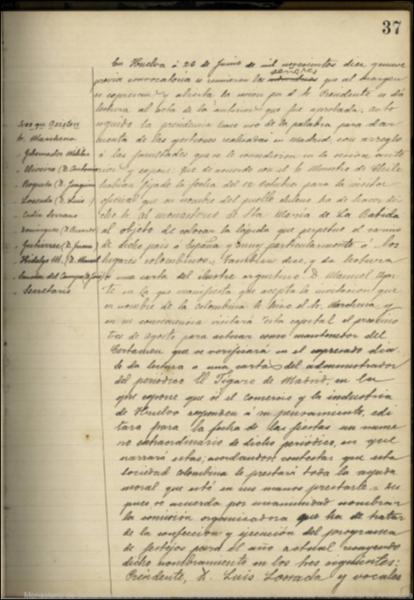 37
En Huelva á 26 de Junio de mil novecientos diez y nueve
previa convocatoria se reunieron los señores que al margen
se expresan y abierta la sesion por el Sr Presidente se dió
lectura al acta de la anterior que fué aprobada; acto
seguido la presidencia hace uso de la palabra para dar
cuenta de las gestiones realizadas en Madrid, con arreglo
á las facultades que se le concedieron en la sesion ante-
rior y expone que de acuerdo con el Sr Ministro de Chile
habian fijado la fecha del 12 Octubre para la visita
oficial que en nombre del pueblo chileno ha de hacer di-
cho Sr al monasterio de Sta Maria de La Rabida
al objeto de colocar la lápida que perpetue el cariño
de dicho pais á España y muy particularmente á los
lugares colombinos. Tambien dice, y da lectura
á una carta del ilustre arquitecto D. Manuel
en la que manifiesta que acepta la invitacion que
en nombre de la colombina le hizo el Sr Marchena, y
en su consecuencia visitará esta capital el proximo
tres de agosto para actuar como mantenedor del
Certamen que se verificará en el expresado dia.
Se da lectura á una carta del administrador
del periodico El Figaro de Madrid, en la
que expone que si el comercio y la industria
de Huelva responden á su pensamiento, edi-
tara para la fecha de las fiestas un nume-
ro extraordinario de dicho periodico, en que
narrará estas; acordandose contestar que esta
sociedad colombina le prestará toda la ayuda
moral que esté en sus manos prestarle. Des-
pues se acuerda por unanimidad nombrar
la comision organizadora que ha de tratar
de la confeccion y ejecucion del programa
de festejos para el año actual recayendo
dicho nombramiento en los Sres siguientes:
Presidente, D. Luis Losada y vocales
Sres que asisten
Sr. Marchena
Gobernador Militar
Oliveira (D. Antonio
Rogueta (D. Joaquin
Losada (D. Luis)
Cadiz Serrano
Dominguez (D.
Gutierrez (D. Juan)
Hidalgo M. (D. Manuel
del Campo (D. José
Secretario